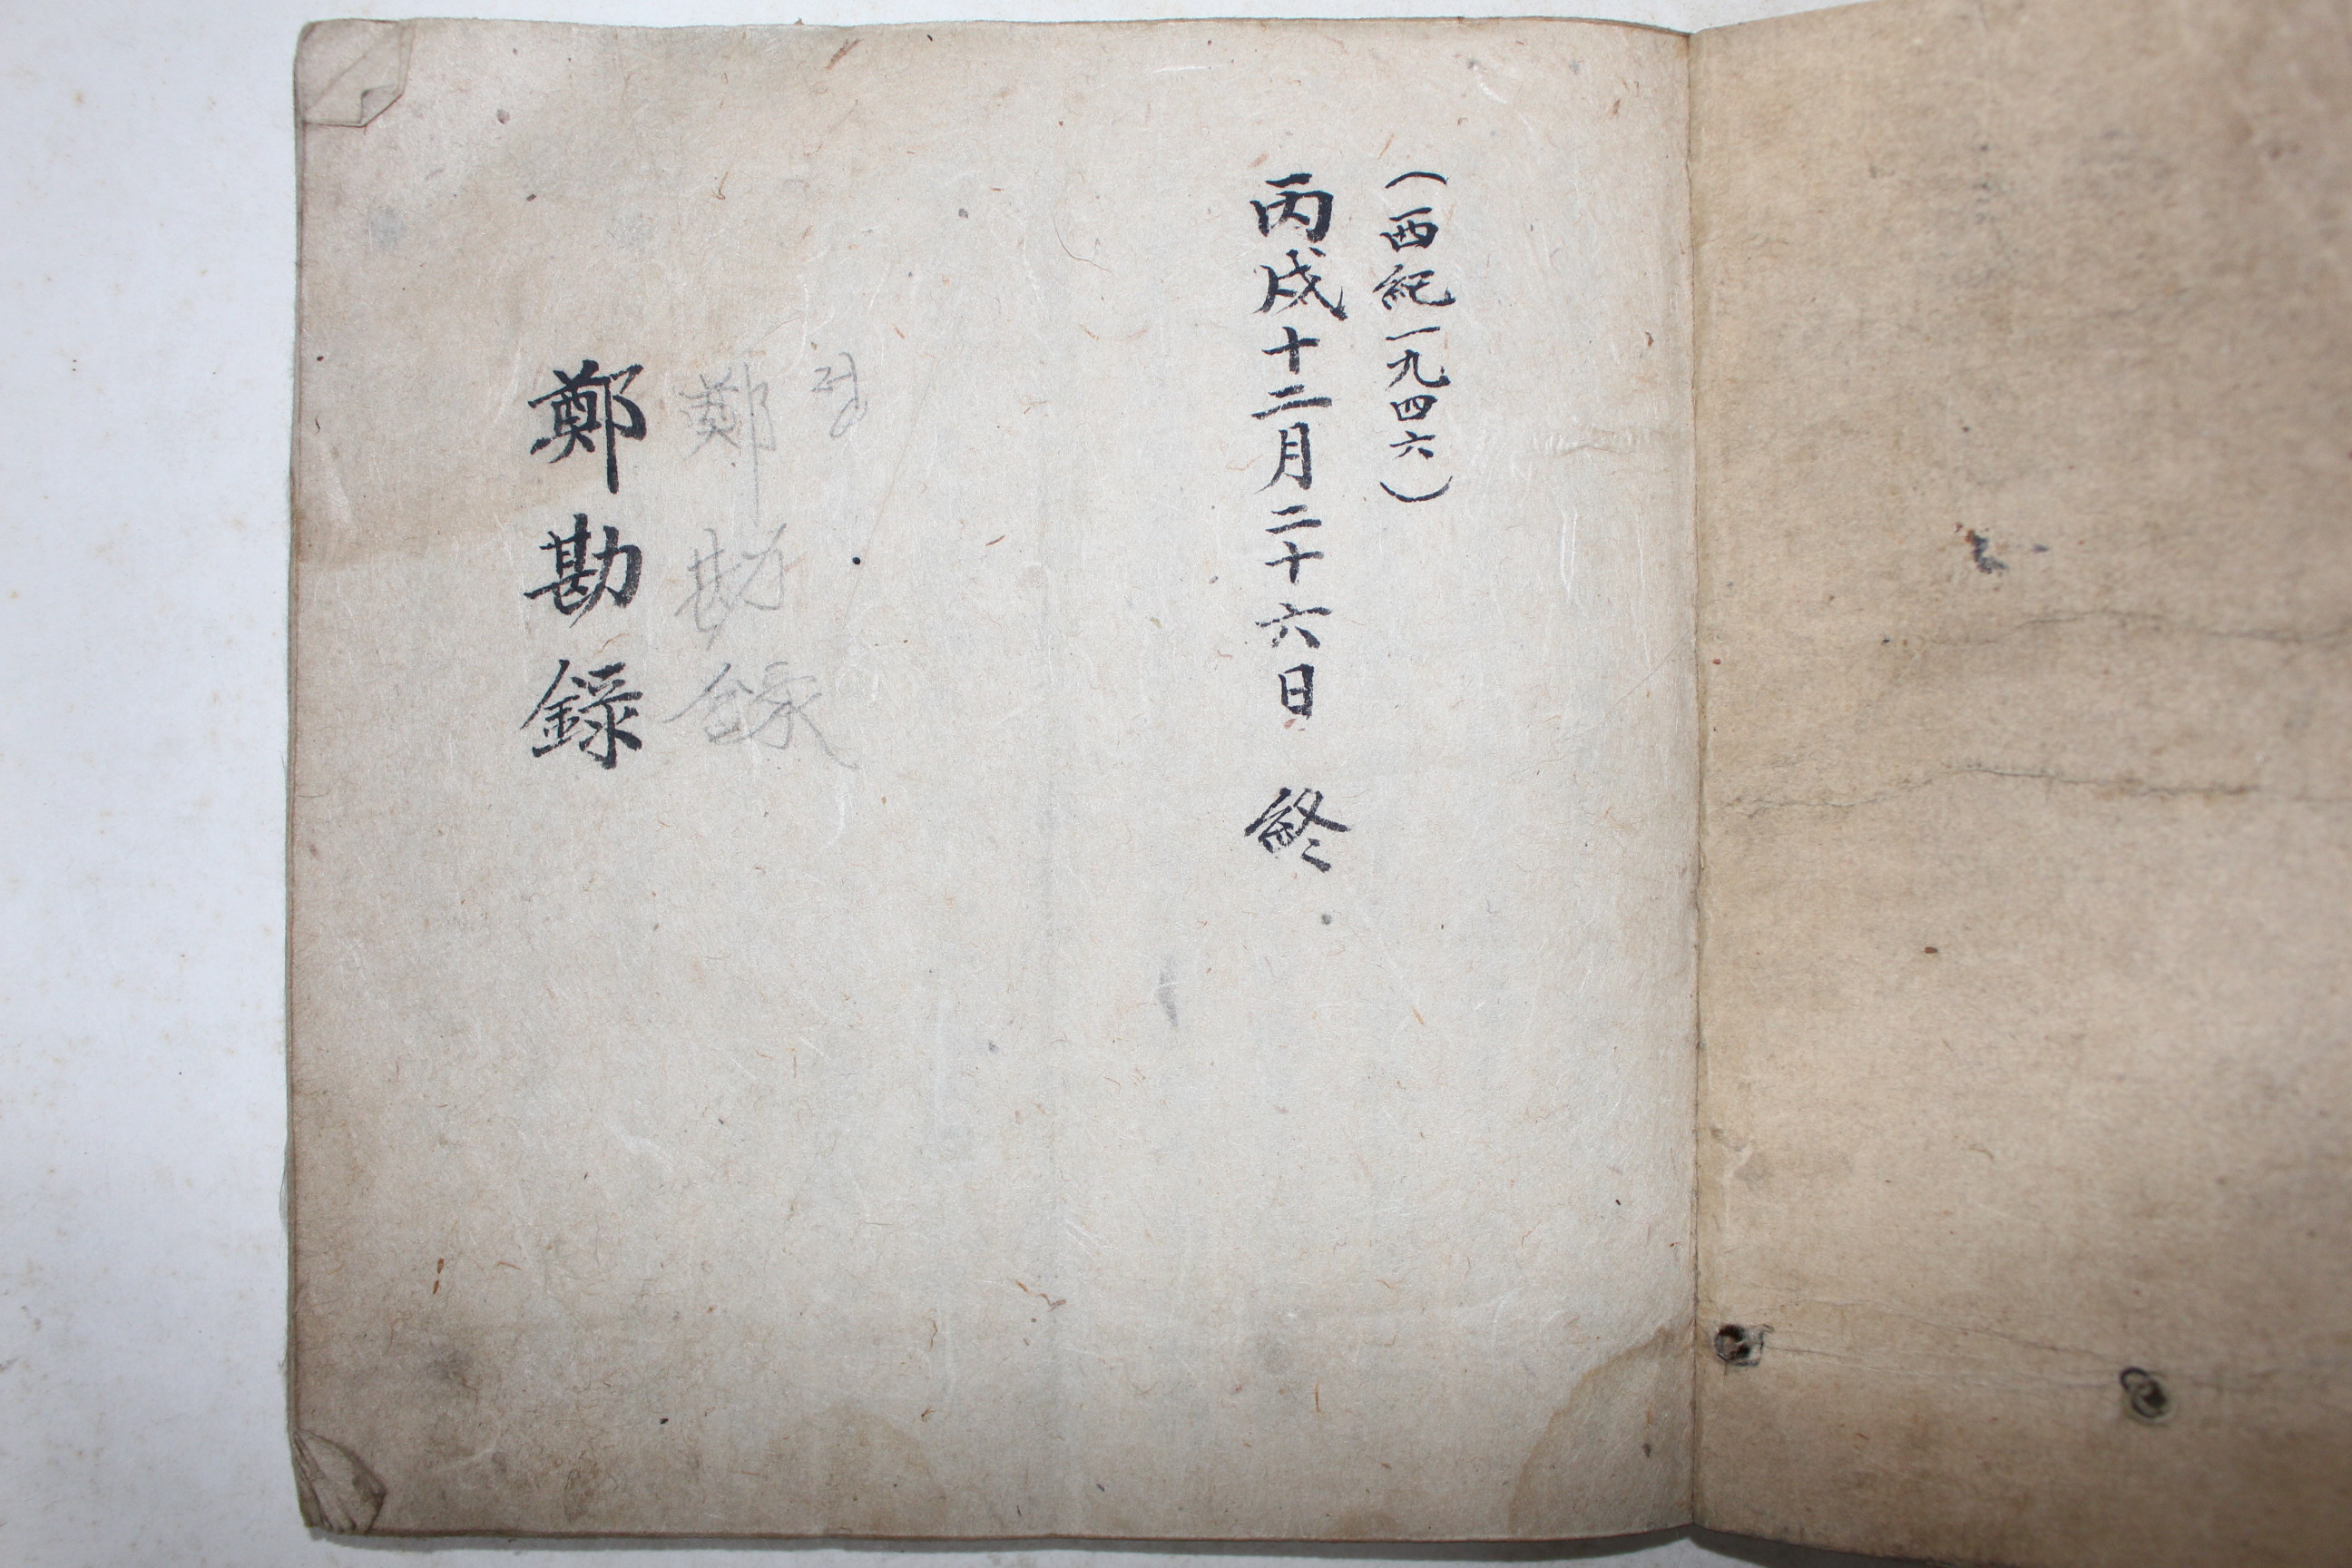 (西紀一九四六)
丙戌十二月二十六日 終
정
鄭勘錄
鄭勘錄